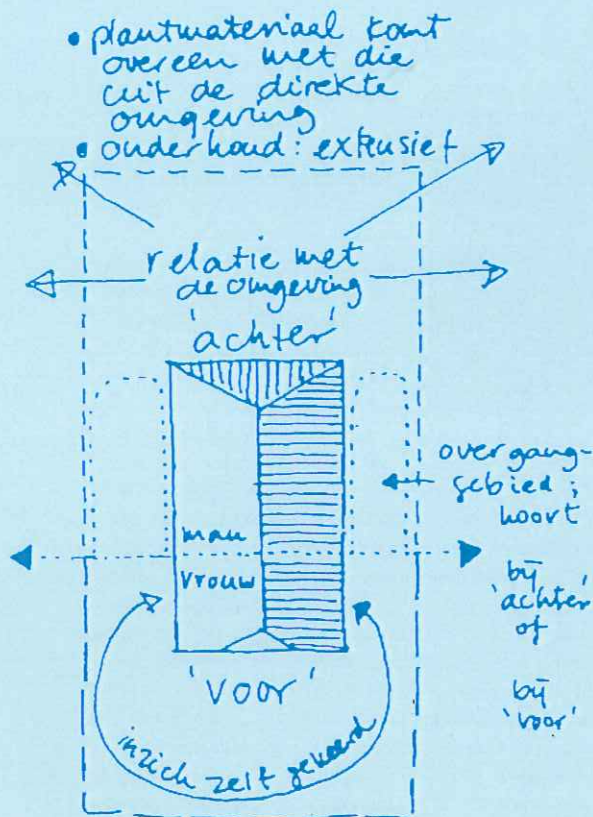 • plantmateriaal komt
overeen met die
uit de direkte
omgeving
• onderhoud: extensief
relatie met
de omgeving
'achter'
overgang-
gebied;
hoort
bij
'achter'
of
bij
'voor'
man
vrouw
'voor'
in zich zelf gekeerd